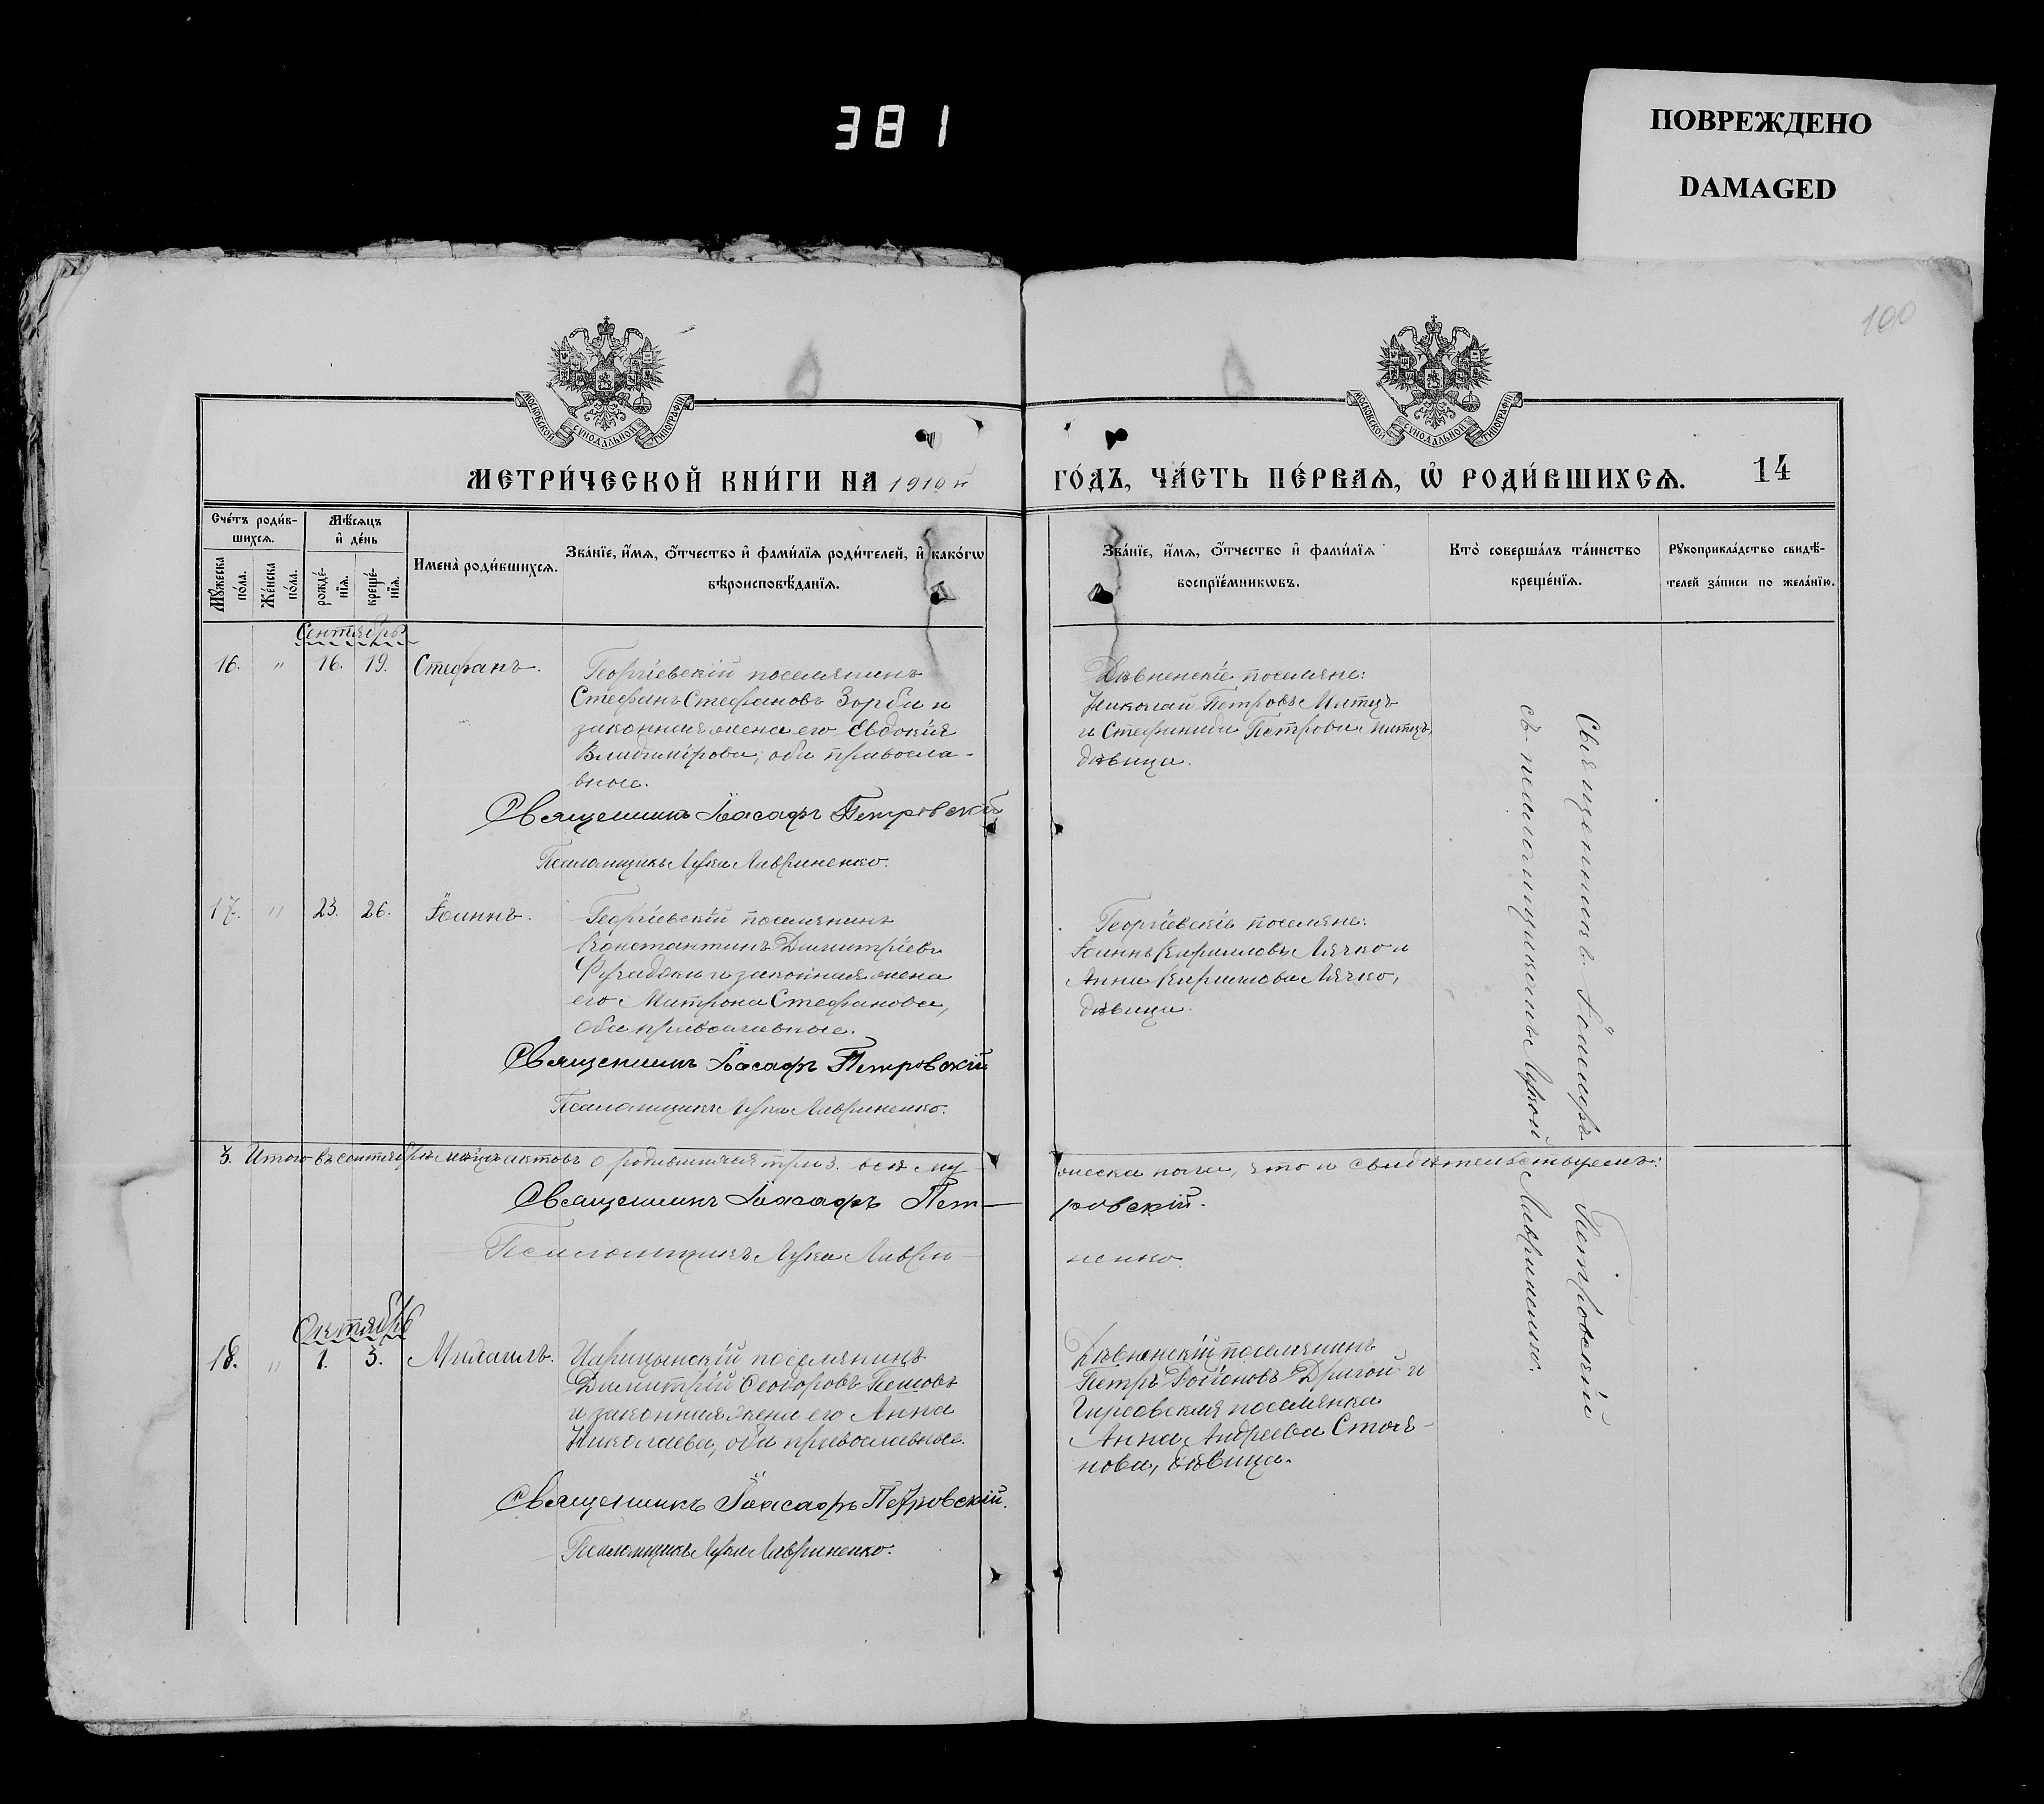 381
ПОВРЕЖДЕНО
DAMAGED
100
МОСКОВСКОЙ СУНОДАЛЬНОЙ ТИПОГРАФІИ
МОСКОВСКОЙ СУНОДАЛЬНОЙ ТИПОГРАФІИ
МЕТРИ́ЧЕСКОЙ КНИ́ГИ НА 1910й
ГО́ДЪ, ЧА́СТЬ ПЕ́РВАѦ, Ѡ҆ РОДИ́ВШИХСѦ. 14
Сче́тъ роди́в-
шихсѧ.
Мѣ́сѧцъ
и҆ де́нь
Мꙋ́жеска по́ла.
Же́нска по́ла.
рожде́-нїѧ.
креще́-нїѧ.
Имена̀ роди́вшихсѧ.
Зва́нїе, и҆́мѧ, ѻ҆́тчество и҆ фами́лїѧ роди́телей, и҆ како́гѡ
вѣроисповѣ́данїѧ.
Зва́нїе, и҆́мѧ, ѻ҆́тчество и҆ фами́лїѧ
воспрїе́мникѡвъ.
Кто̀ соверша́лъ та́инство
креще́нїѧ.
Рꙋкоприкла́дство свидѣ́-
телей за́писи по жела́нїю.
Сентябрь
16. " 16. 19. Стефанъ.
Георгіевскій поселянинъ
Стефанъ Стефановъ Зорба и
законная жена его Евдокія
Владимірова, оба правосла-
вные.
Священникъ Іоасафъ Петровскій
Псаломщикъ Лука Лавриненко.
Дѣвненскіе поселяне:
Николай Петровъ
и Стефанида Петрова
дѣвица.
17. " 23. 26. Іоаннъ.
Георгіевскій поселянинъ
Константинъ Димитріевъ
и законная жена
его Матрона Стефанова,
оба православные.
Священникъ Іоасафъ Петровскій
Псаломщикъ Лука Лавриненко.
Георгіевскіе поселяне:
Іоаннъ Кирилловъ Лячко и
Анна Кириллова Лячко,
дѣвица.
3. Итого въ сентябрѣ мѣсяцѣ актовъ о родившихся три 3. всѣ му
жеска пола, что и свидѣтельствуемъ:
Священникъ Іоасафъ Пет-
ровскій.
Псаломщикъ Лука Лаври-
ненко.
Октябрь
18. " 1. 3. Михаилъ.
Царицынскій поселянинъ
Димитрій Ѳеодоровъ Пешовъ
и законная жена его Анна
Николаева, оба православные.
Священникъ Іоасафъ Петровскій.
Псаломщикъ Лука Лавриненко.
Дѣвненскій поселянинъ
Петръ Драгой и
Гирсовская поселянка
Анна Андреева Стоя-
нова, дѣвица.
Священникъ Іоасафъ Петровскій
съ псаломщикомъ Лукой Лавриненко.